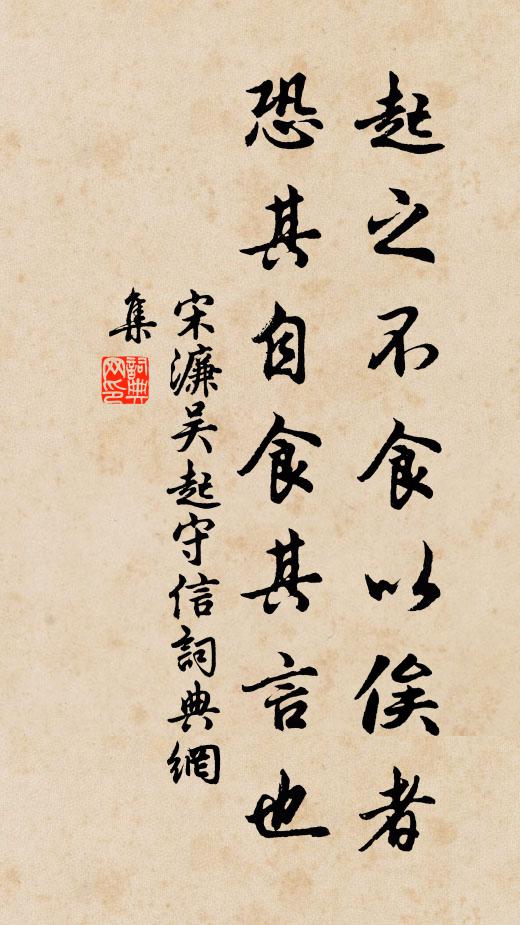 起之不食以俟者
恐其自食其言也
宋濂吴起守信詞典網
集
詞典
网印